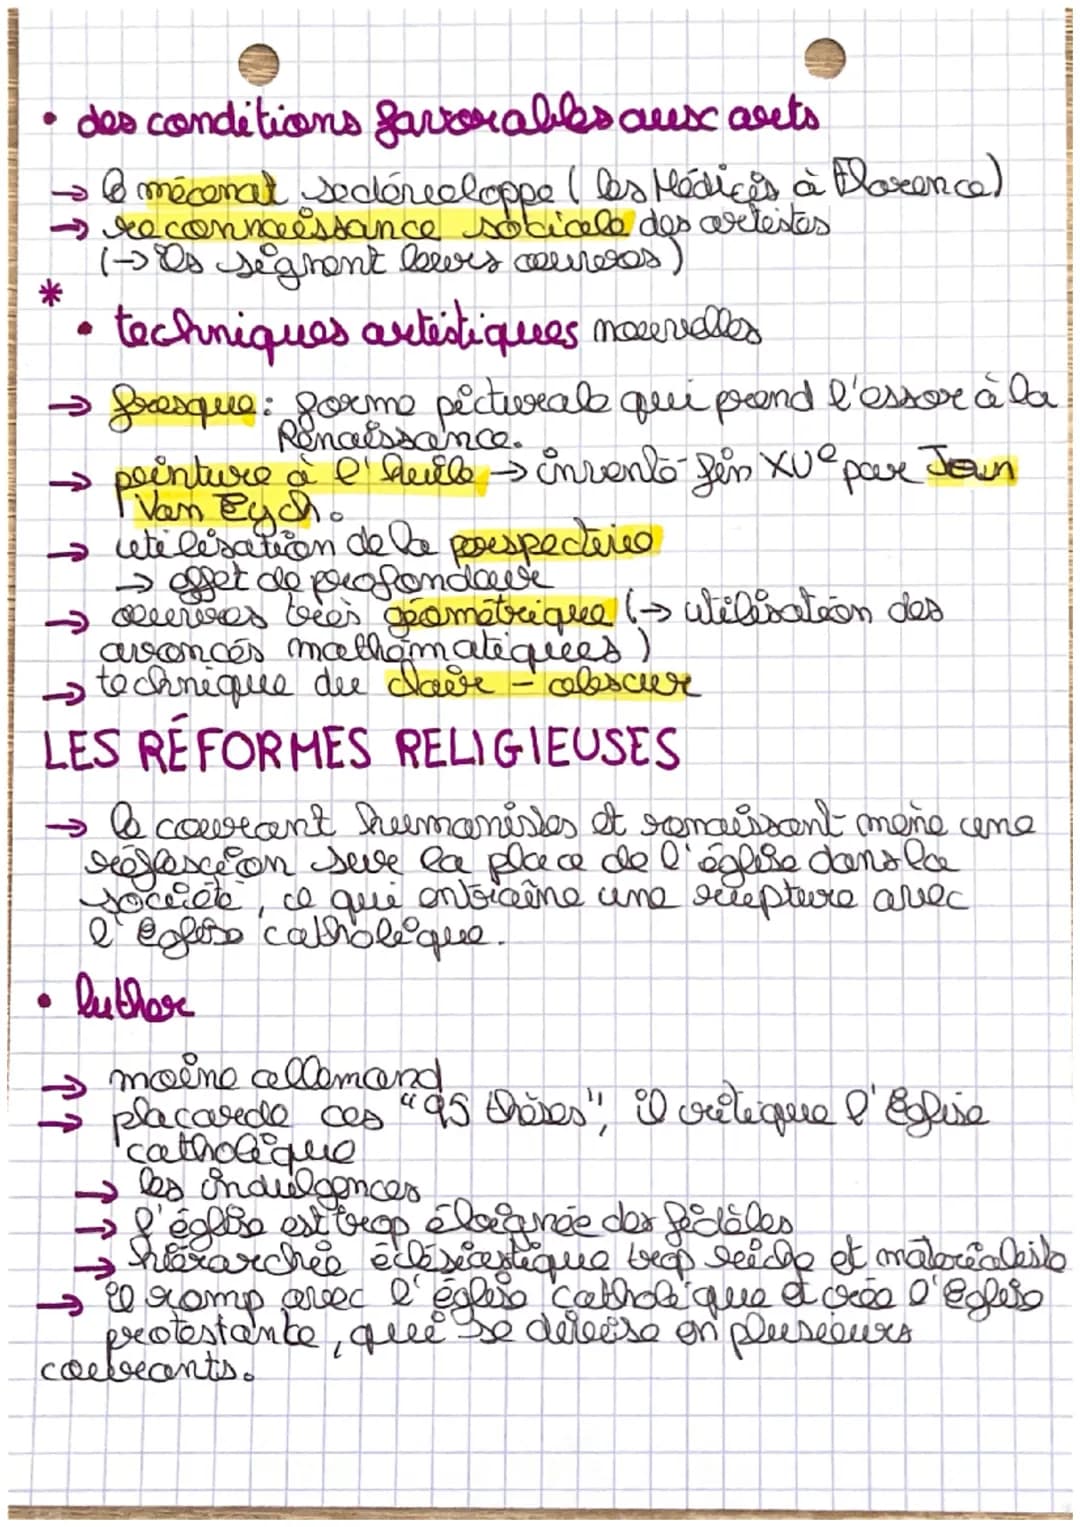 • des conditions favorables aux arts
→ le mécénat se développe (les Médicis à Florence)
→ reconnaissance sociale des artistes
(→ ils signent leurs œuvres)
*
• techniques artistiques nouvelles
→ fresque : forme picturale qui prend l'essor à la
Renaissance.
→ peinture à l'huile → inventé fin XVe par Jean
Van Eych.
→ utilisation de la perspective
→ effet de profondeur
→ œuvres très géométrique (→ utilisation des
avancés mathématiques)
→ technique du claire - obscur
LES RÉFORMES RELIGIEUSES
→ le courant humanistes et renaissant mène une
réflexion sur la place de l'église dans la
société, ce qui entraîne une rupture avec
l'église catholique.
• luther
→ moine allemand
→ placarde ces "95 thèses", il critique l'Église
catholique
→ les indulgences
→ l'église est trop éloignée des fidèles
→ hiérarchie éclésiastique trop riche et matérialiste
→ il romp avec l'église catholique et crée l'Eglise
protestante, qui se divise en plusieurs
courants.